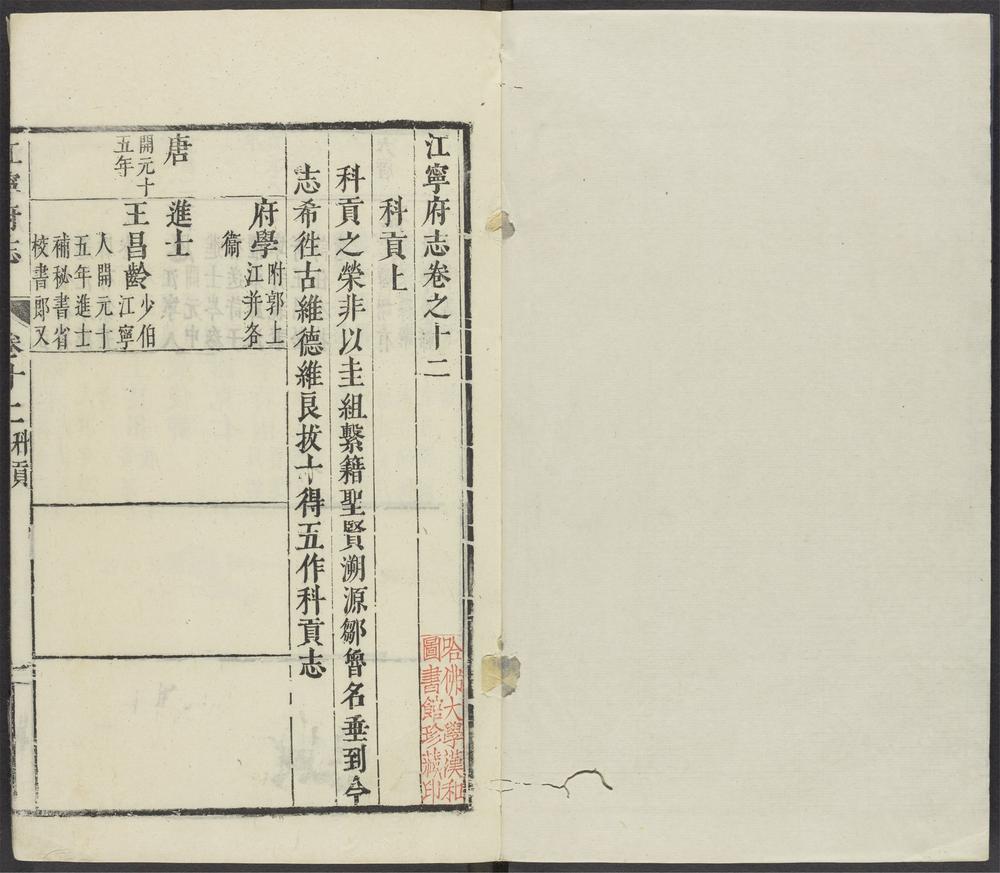 江寧府志卷之十二
科貢上
科貢之榮非以圭組繫籍聖賢溯源鄒魯名垂到今
志希徃古維德維良拔十得五作科貢志
府學附郭上
江并各
衞
唐
進士
開元十
五年
王昌齡少伯
江寧
人開元十
五年進士
補秘書省
校書郎又
江寧府志
卷十二科貢
一
哈佛大學漢和
圖書館珍藏印